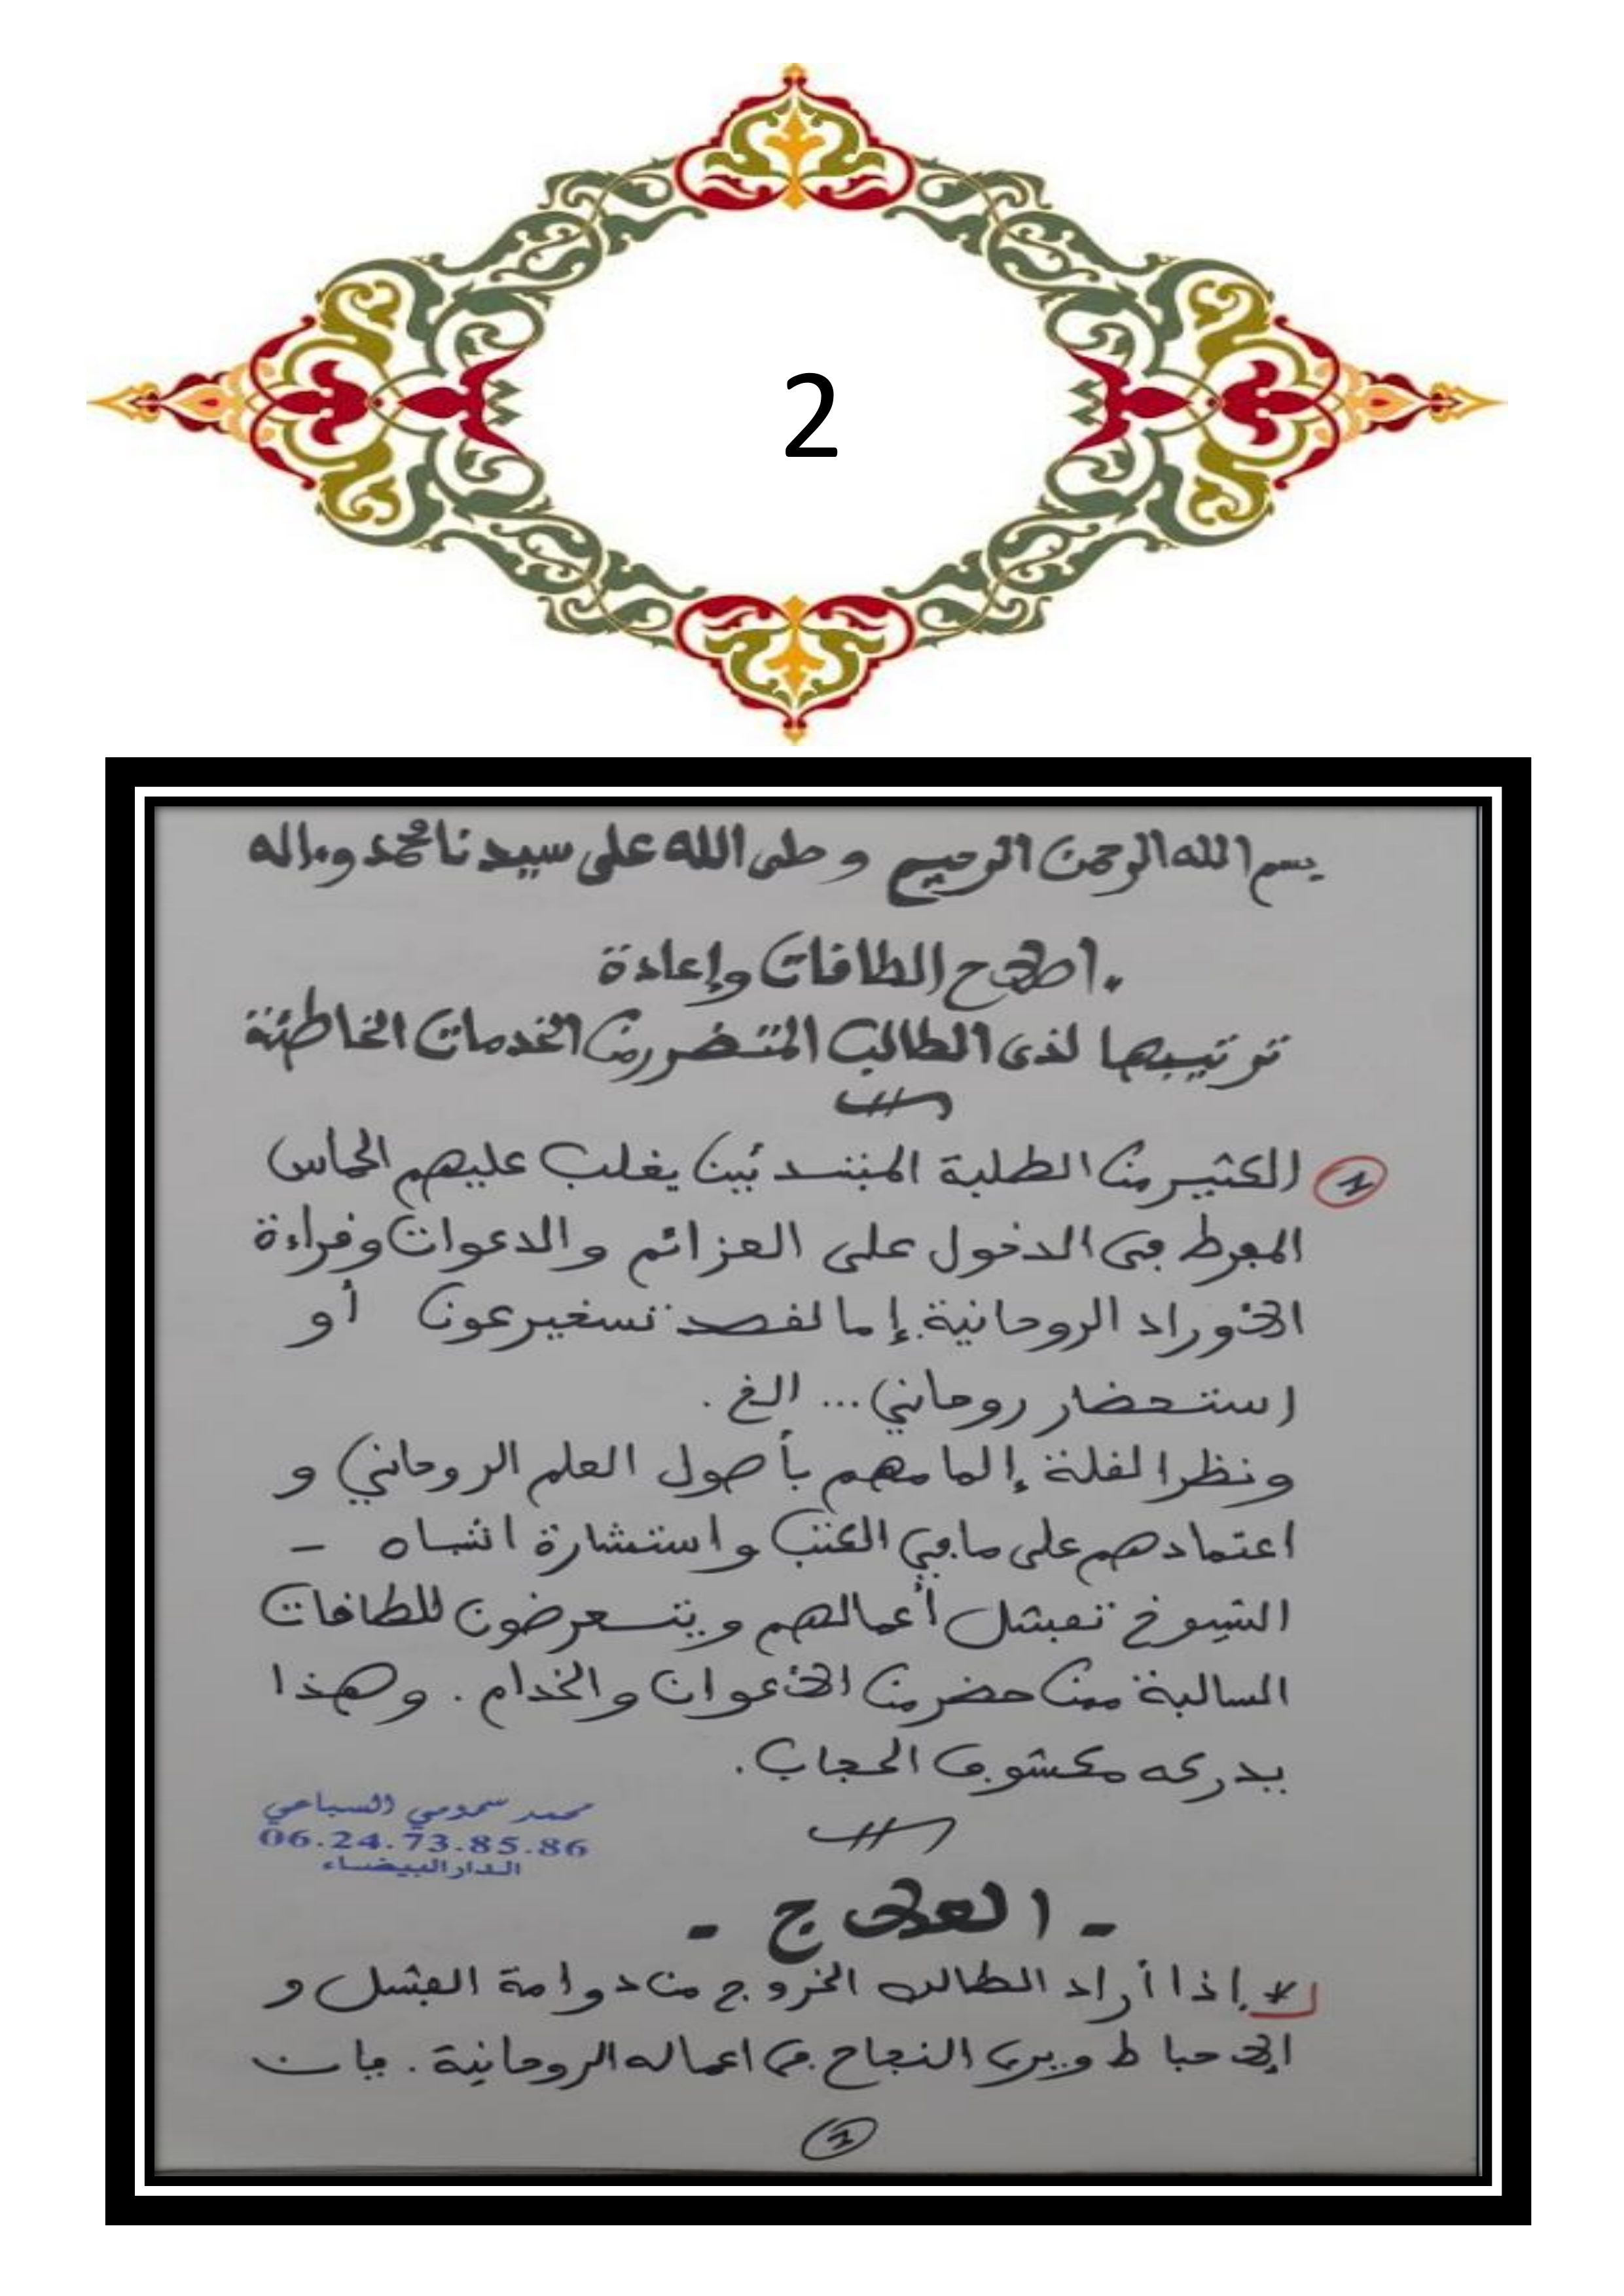 2
بسم الله الرحمن الرحيم وصلى الله على سيدنا محمد وءاله
إصلاح الطاقات وإعادة
ترتيبها لذى الطالب المتضرر من الخدمات الخاطئة
1 الكثير من الطلبة المبتدئين يغلب عليهم الحماس
المفرط في الدخول على العزائم والدعوات وقراءة
الأوراد الروحانية. إما لقصد تسخير عون أو
استحضار روحاني... الخ.
ونظرا لقلة إلمامهم بأصول العلم الروحاني و
اعتمادهم على ما في الكتب واستشارة اشباه -
الشيوخ تفشل أعمالهم ويتعرضون للطاقات
السالبة ممن حضر من الأعوان والخدام. وهذا
يدركه مكشوف الحجاب.
محمد سمومي السباعي
06.24.73.85.86
الدار البيضاء
- العلاج -
* إذا أراد الطالب الخروج من دوامة الفشل و
الإحباط ويرى النجاح في اعماله الروحانية. فإن
1